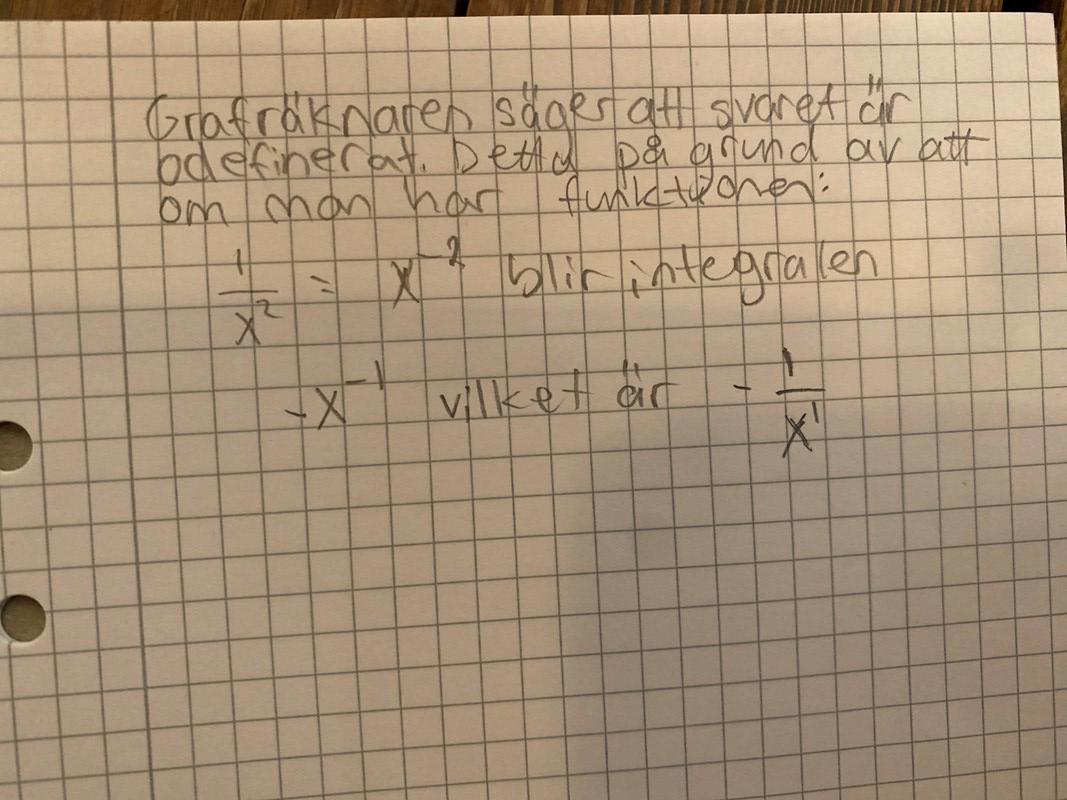 Grafräknaren säger att svaret är
odefinerat. Detta på grund av att
om man har funktionen:
1/x² = x⁻² blir integralen
-x⁻¹ vilket är - 1/x¹